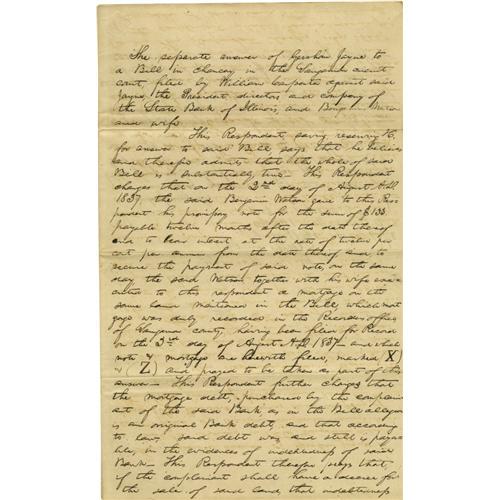 The separate answer of Gershom Jayne to
a Bill in Chancery in the Sangamon circuit
court filed by William Carpenter against said
Jayne, the President, directors and company of
the State Bank of Illinois, and Benjamin Watson
and wife
This Respondent, saving, reserving &c,
for answer to said Bill, says that he believes
and therefore admits that the whole of said
Bill is substantially true. This Respondent
charges that on the 3rd day of August A.D.
1837, the said Benjamin Watson gave to this Res
pondent his promissory note for the sum of $133
payable twelve months after the date thereof
and to bear interest at the rate of twelve per
cent per annum from the date thereof and to
secure the payment of said note, on the same
day the said Watson together with his wife exe
cuted to this respondent a mortgage on the
same land mentioned in the Bill, which mort
gage was duly recorded in the Recorders office
of Sangamon county, having been filed for Record
on the 3rd day of August A.D. 1837— and which
note & mortgage are herewith filed, marked (X)
& (Z) and prayed to be taken as part of this
answer— This Respondent further charges that
the mortgage debt, purchased by the complain
ant of the said Bank, as in the Bill alleged
is an original Bank debt, and that according
to law, said debt was and still is paya
ble, in the evidences of indebtedness of said
Bank— This Respondent therefore, prays that,
if the complainant shall have a decree for
the sale of said land, that indebtedness